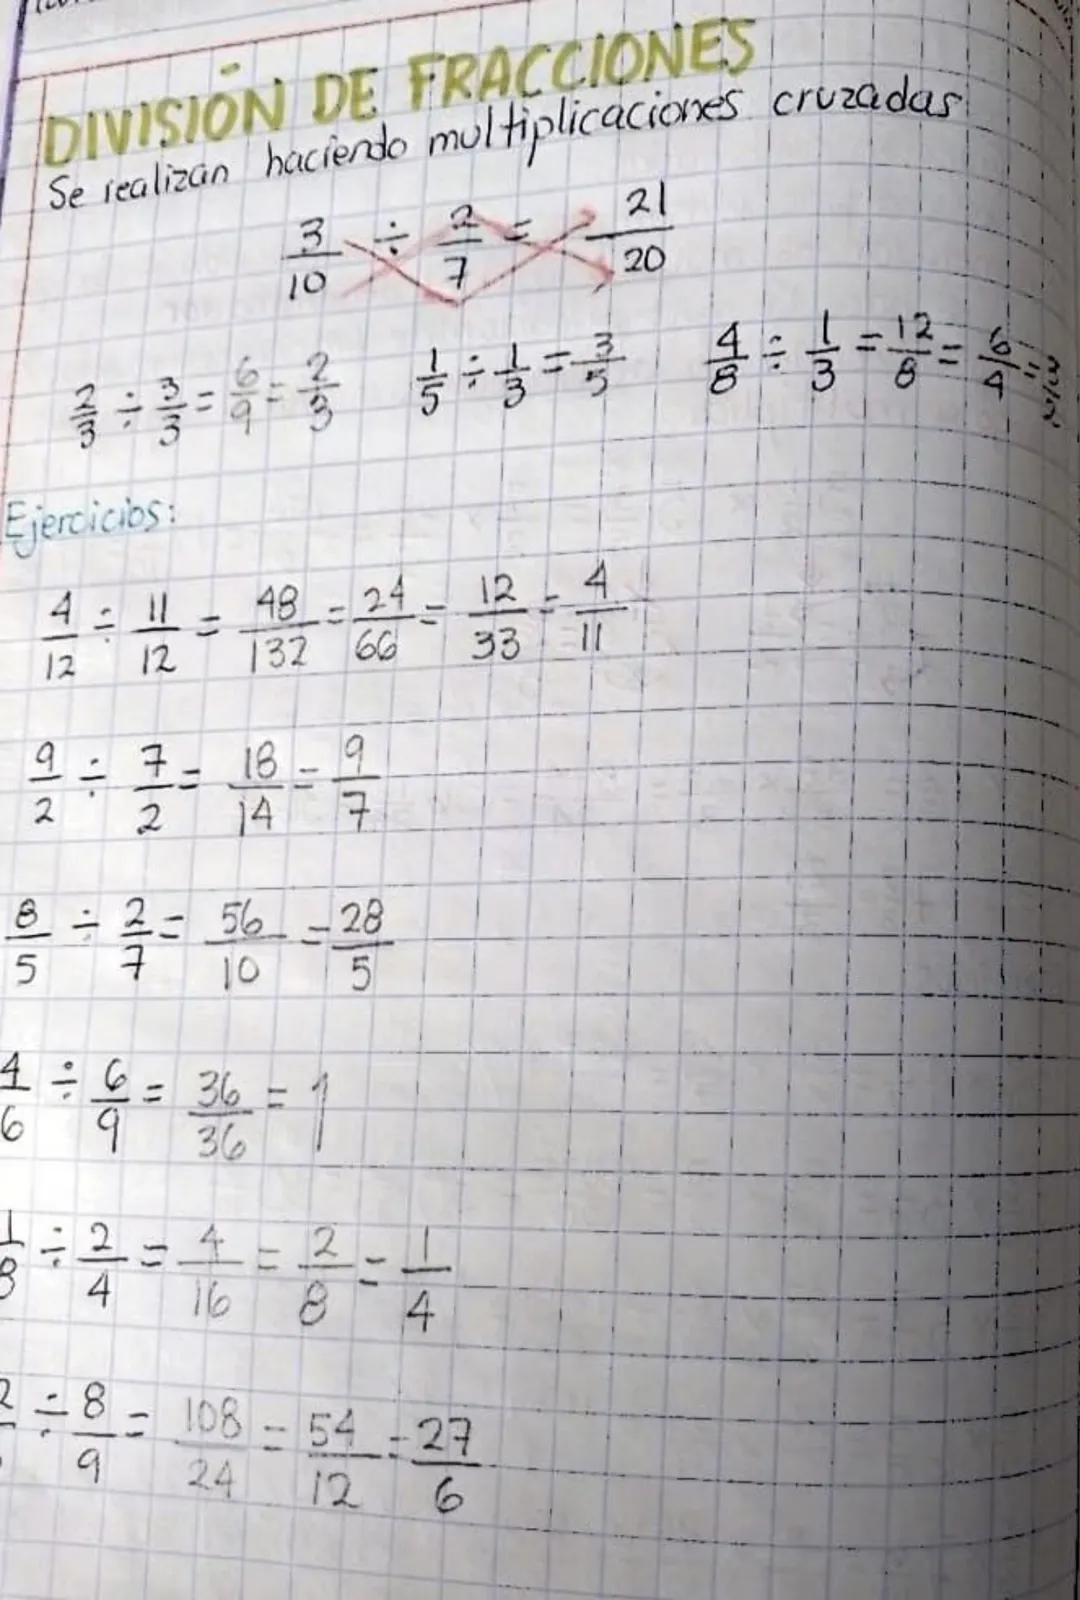 DIVISIÓN DE FRACCIONES
Se realizan haciendo multiplicaciones cruzadas
3/10 ÷ 2/7 = 21/20
2/3 ÷ 3/3 = 6/9 = 2/3 1/5 ÷ 1/3 = 3/5 4/8 ÷ 1/3 = 12/8 = 6/4 = 3/2
Ejercicios:
4/12 ÷ 11/12 = 48/132 = 24/66 = 12/33 = 4/11
9/2 ÷ 7/2 = 18/14 = 9/7
8/5 ÷ 2/7 = 56/10 = 28/5
4/6 ÷ 6/9 = 36/36 = 1
1/8 ÷ 2/4 = 4/16 = 2/8 = 1/4
÷ 8/9 = 108/24 = 54/12 = 27/6